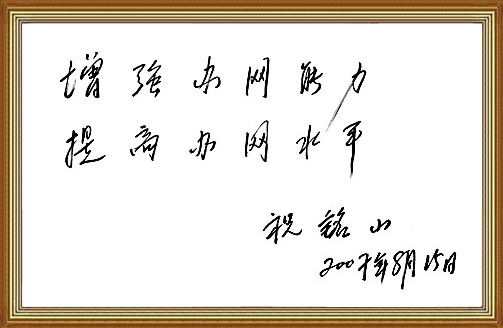 增强办网能力
提高办网水平
祝铭山
2007年8月15日